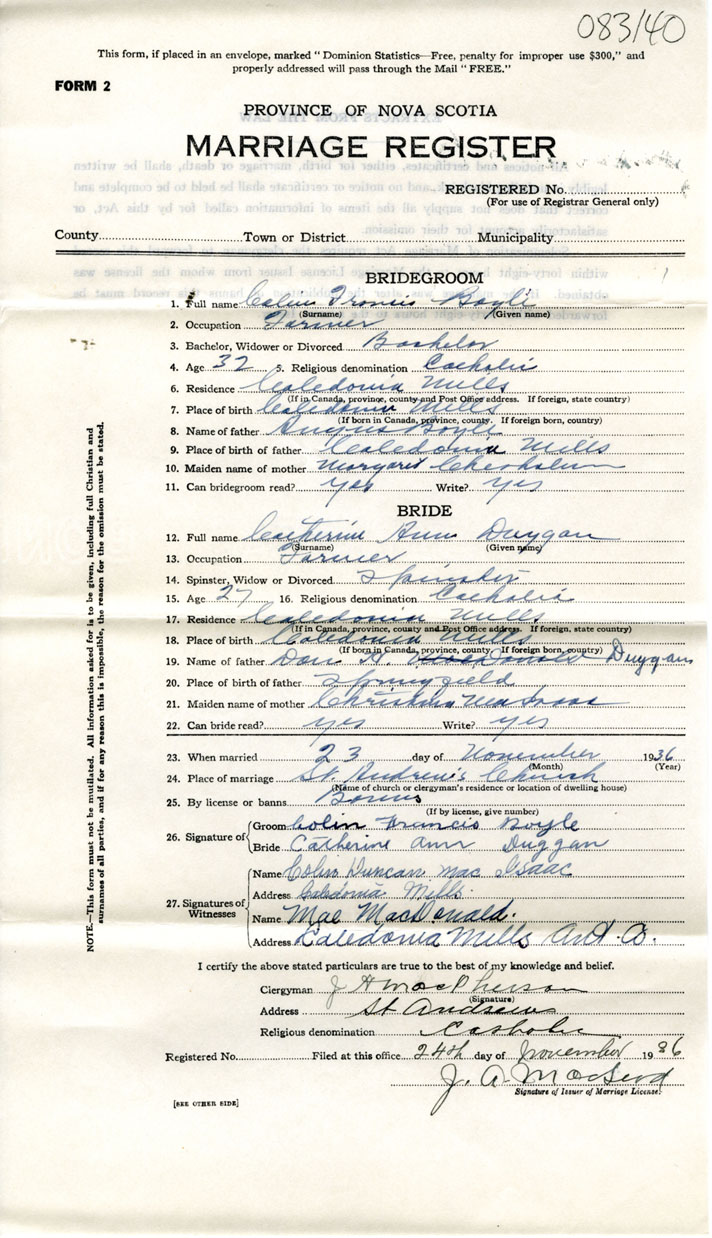 083/40
This form, if placed in an envelope, marked "Dominion Statistics—Free, penalty for improper use $300," and
properly addressed will pass through the Mail "FREE."
FORM 2
PROVINCE OF NOVA SCOTIA
MARRIAGE REGISTER
REGISTERED No.
(For use of Registrar General only)
County Town or District Municipality
BRIDEGROOM
1. Full name Colin Francis Boyle
(Surname) (Given name)
2. Occupation Farmer
3. Bachelor, Widower or Divorced Bachelor
4. Age 32 5. Religious denomination Catholic
6. Residence Caledonia Mills
(If in Canada, province, county and Post Office address. If foreign, state country)
7. Place of birth Caledonia Mills
(If born in Canada, province, county. If foreign born, country)
8. Name of father Angus Boyle
9. Place of birth of father Caledonia Mills
10. Maiden name of mother Margaret Chisholm
11. Can bridegroom read? yes Write? yes
BRIDE
12. Full name Catherine Ann Duggan
(Surname) (Given name)
13. Occupation Farmer
14. Spinster, Widow or Divorced Spinster
15. Age 27 16. Religious denomination Catholic
17. Residence Caledonia Mills
(If in Canada, province, county and Post Office address. If foreign, state country)
18. Place of birth Caledonia Mills
(If born in Canada, province, county. If foreign born, country)
19. Name of father Dan MacDonald Duggan
20. Place of birth of father Springfield
21. Maiden name of mother Christina MacIsaac
22. Can bride read? yes Write? yes
23. When married 23 day of November 1936
(Month) (Year)
24. Place of marriage St. Andrew's Church
(Name of church or clergyman's residence or location of dwelling house)
25. By license or banns Banns
(If by license, give number)
26. Signature of Groom Colin Francis Boyle
Bride Catherine Ann Duggan
27. Signatures of Witnesses Name Colin Duncan Mac Isaac
Address Caledonia Mills
Name Mae MacDonald.
Address Caledonia Mills Ant. Co.
I certify the above stated particulars are true to the best of my knowledge and belief.
Clergyman J H MacPherson
(Signature)
Address St Andrews
Religious denomination Catholic
Registered No. Filed at this office 24th day of November 1936
J. A. MacLeod
Signature of Issuer of Marriage License.
[SEE OTHER SIDE]
NOTE.—This form must not be mutilated. All information asked for is to be given, including full Christian and
surnames of all parties, and if for any reason this is impossible, the reason for the omission must be stated.